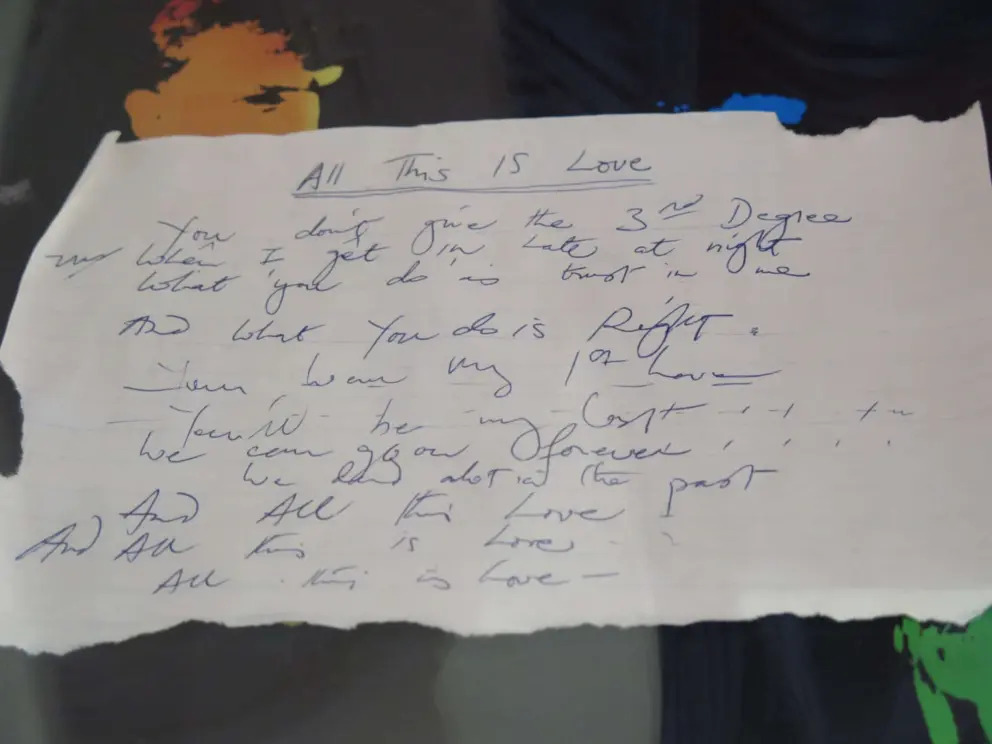 All This IS Love
You don't give the 3rd Degree
When I get in Late at night
What you do is trust in me
And what You do is Right.
my 1st Love
You'll be my Last
We can grow forever
We the past
And All this Love
And All this is Love
All this is Love -